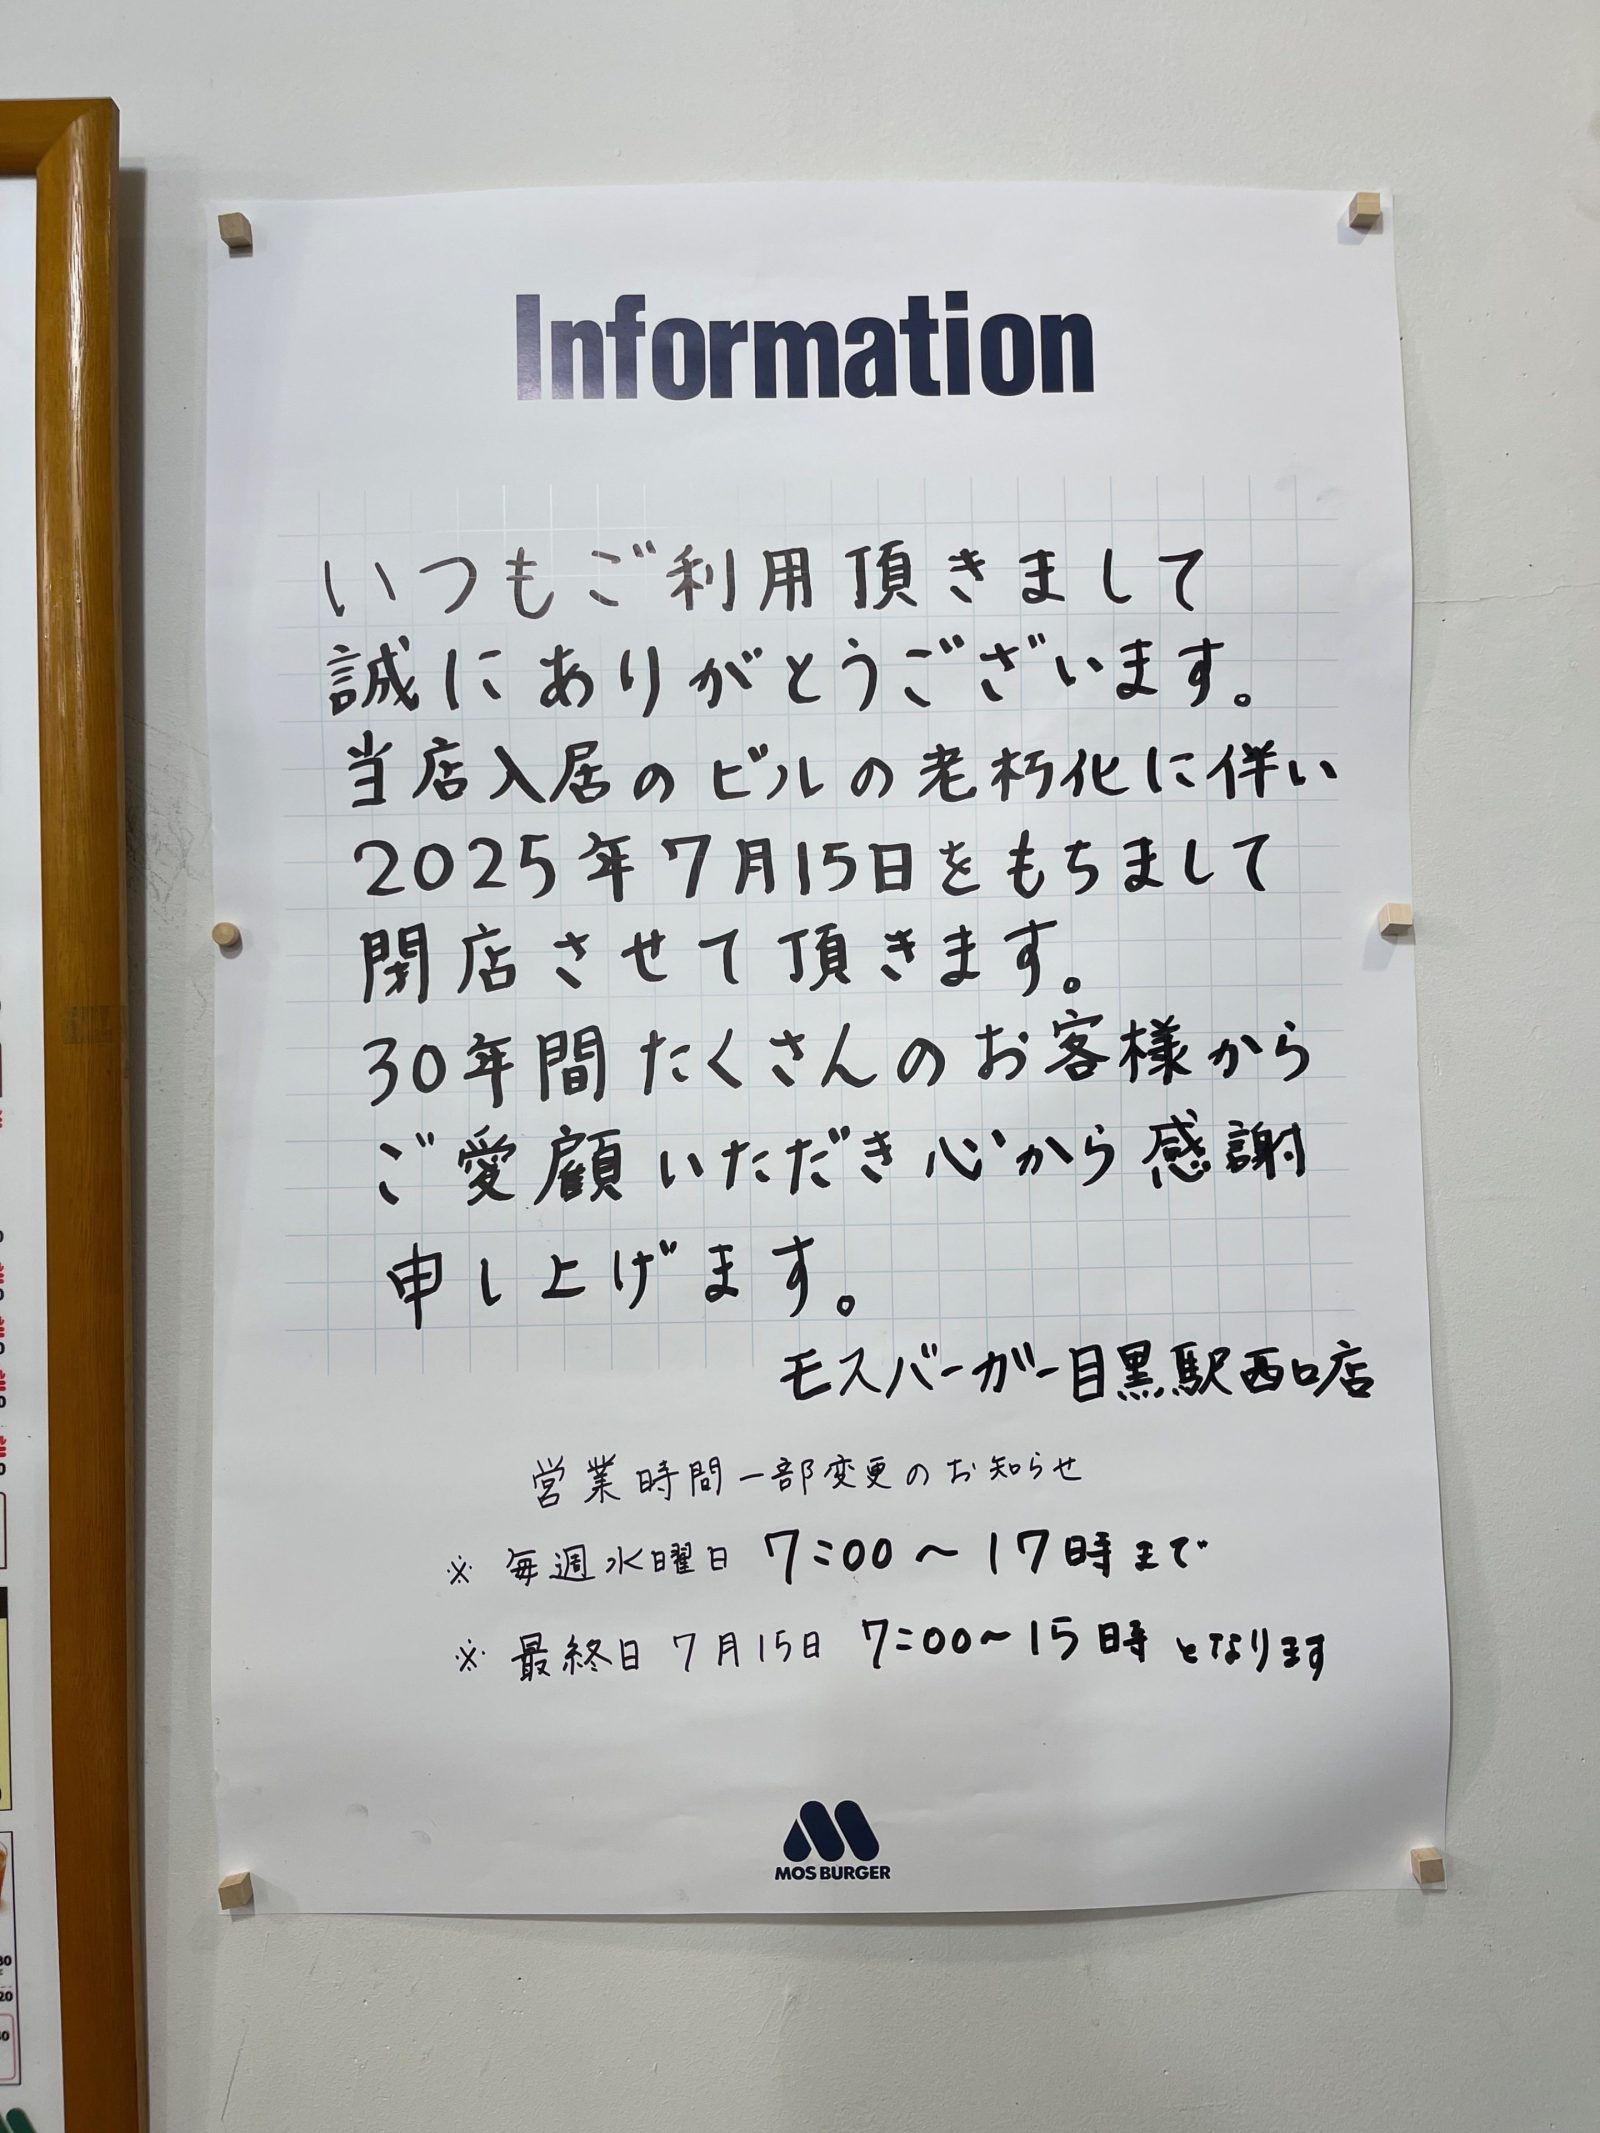 Information
いつもご利用頂きまして
誠にありがとうございます。
当店入居のビルの老朽化に伴い
2025年7月15日をもちまして
閉店させて頂きます。
30年間たくさんのお客様から
ご愛顧いただき心から感謝
申し上げます。
モスバーガー目黒駅西口店
営業時間一部変更のお知らせ
※ 毎週水曜日 7:00〜17時まで
※ 最終日 7月15日 7:00〜15時 となります
MOS BURGER